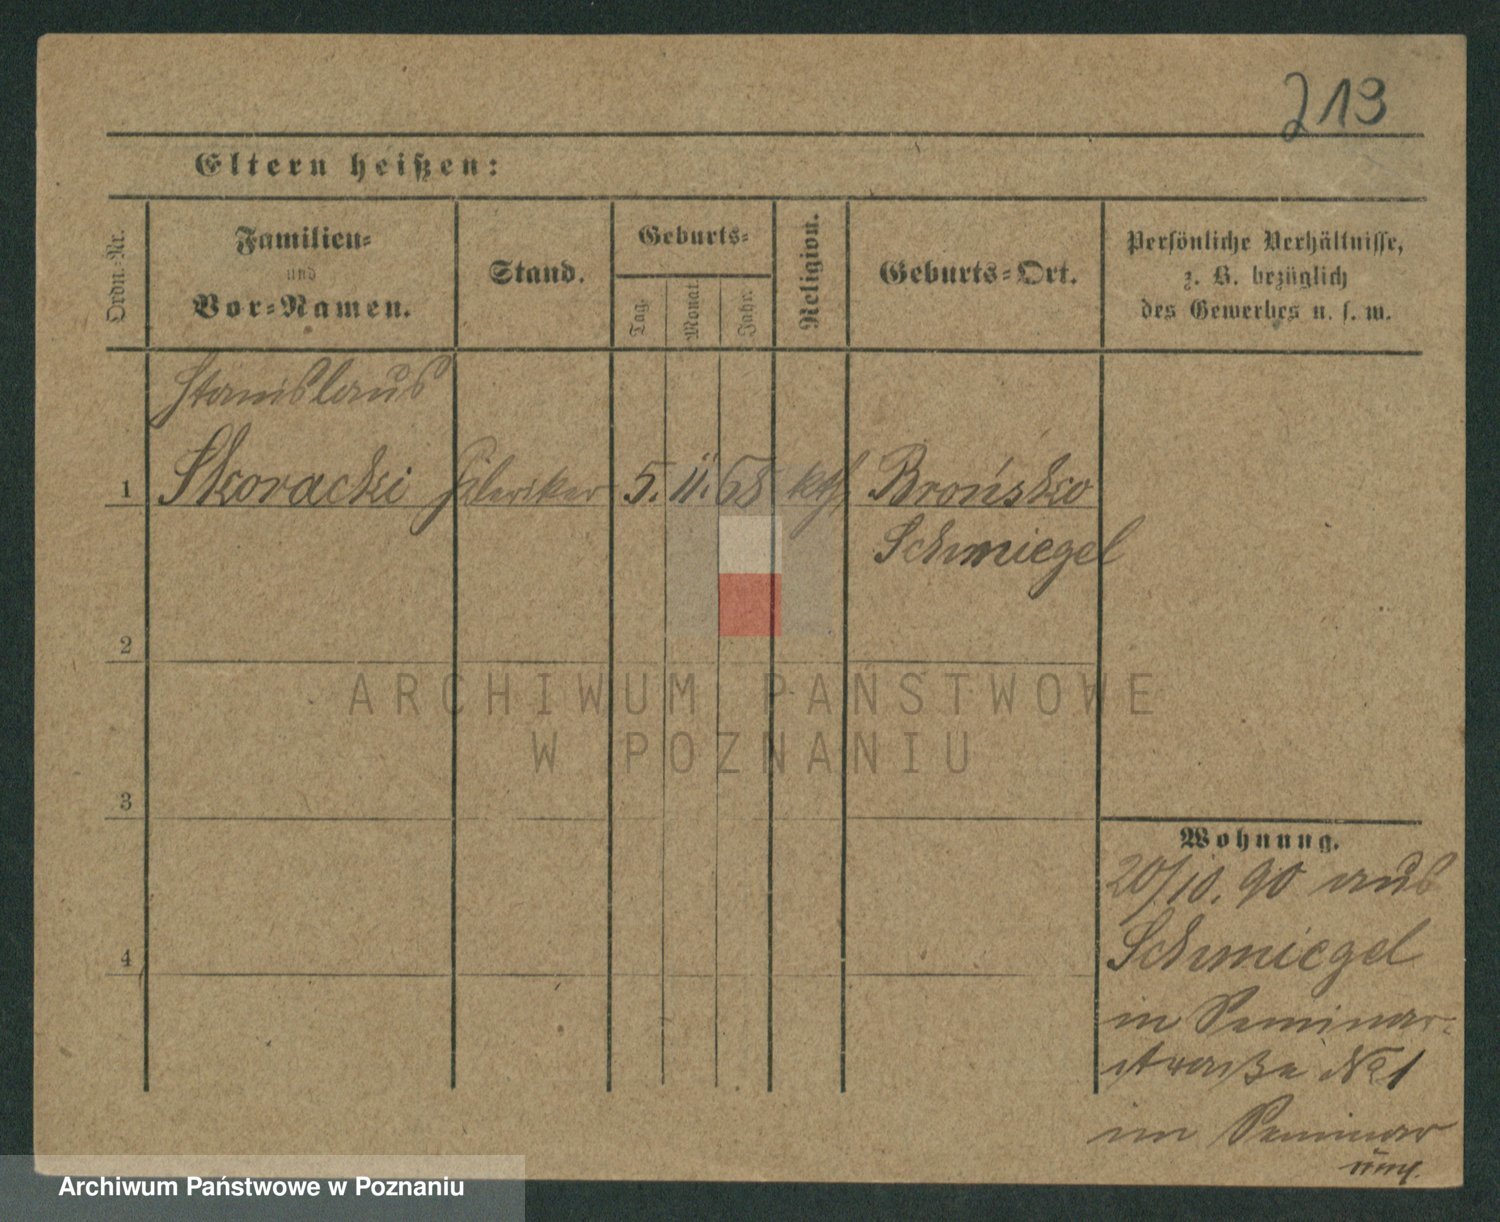 213
Eltern heißen:
Ordn.-Nr.
Familien-
und
Vor-Namen.
Stand.
Geburts-
Tag.
Monat.
Jahr.
Religion.
Geburts-Ort.
Persönliche Verhältnisse,
z. B. bezüglich
des Gewerbes u. s. w.
Stanislaus
1 Skoracki Kleriker 5. 11. 68 kth. Brońsko
Schmiegel
2
3
4
Wohnung.
20/10. 90 aus
Schmiegel
in Seminar-
straße No 1
im Seminar
ARCHIWUM PAŃSTWOWE
W POZNANIU
Archiwum Państwowe w Poznaniu